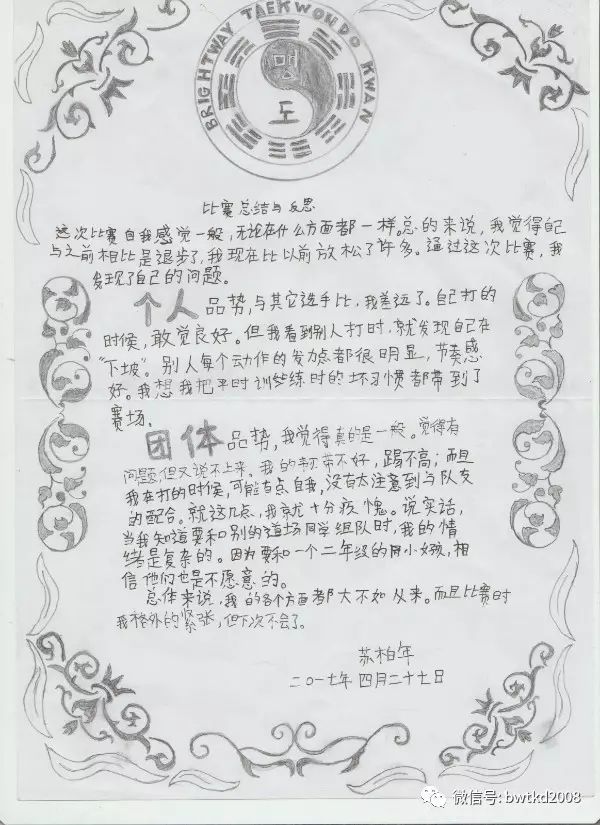 BRIGHTWAY TAEKWONDO KWAN
명
도
比赛总结与反思
这次比赛自我感觉一般，无论在什么方面都一样。总的来说，我觉得自己
与之前相比是退步了，我现在比以前放松了许多。通过这次比赛，我
发现了自己的问题。
个人品势，与其它选手比，我差远了。自己打的
时候，敢觉良好。但我看到别人打时，就发现自己在
“下坡”。别人每个动作的发力点都很明显，节奏感
好。我想我把平时训练时的坏习惯都带到了
赛场。
团体品势，我觉得真的是一般。觉得有
问题，但又说不上来。我的韧带不好，踢不高；而且
我在打的时候，可能有点自我，没有太注意到与队友
的配合。就这几点，我就十分疚愧。说实话，
当我知道要和别的道场同学组队时，我的情
绪是复杂的。因为要和一个二年级的小女孩，相
信他们也是不愿意的。
总体来说，我的各个方面都大不如从来。而且比赛时
我格外的紧张，但下次不会了。
苏柏年
二〇一七年四月二十七日
微信号: bwtkd2008